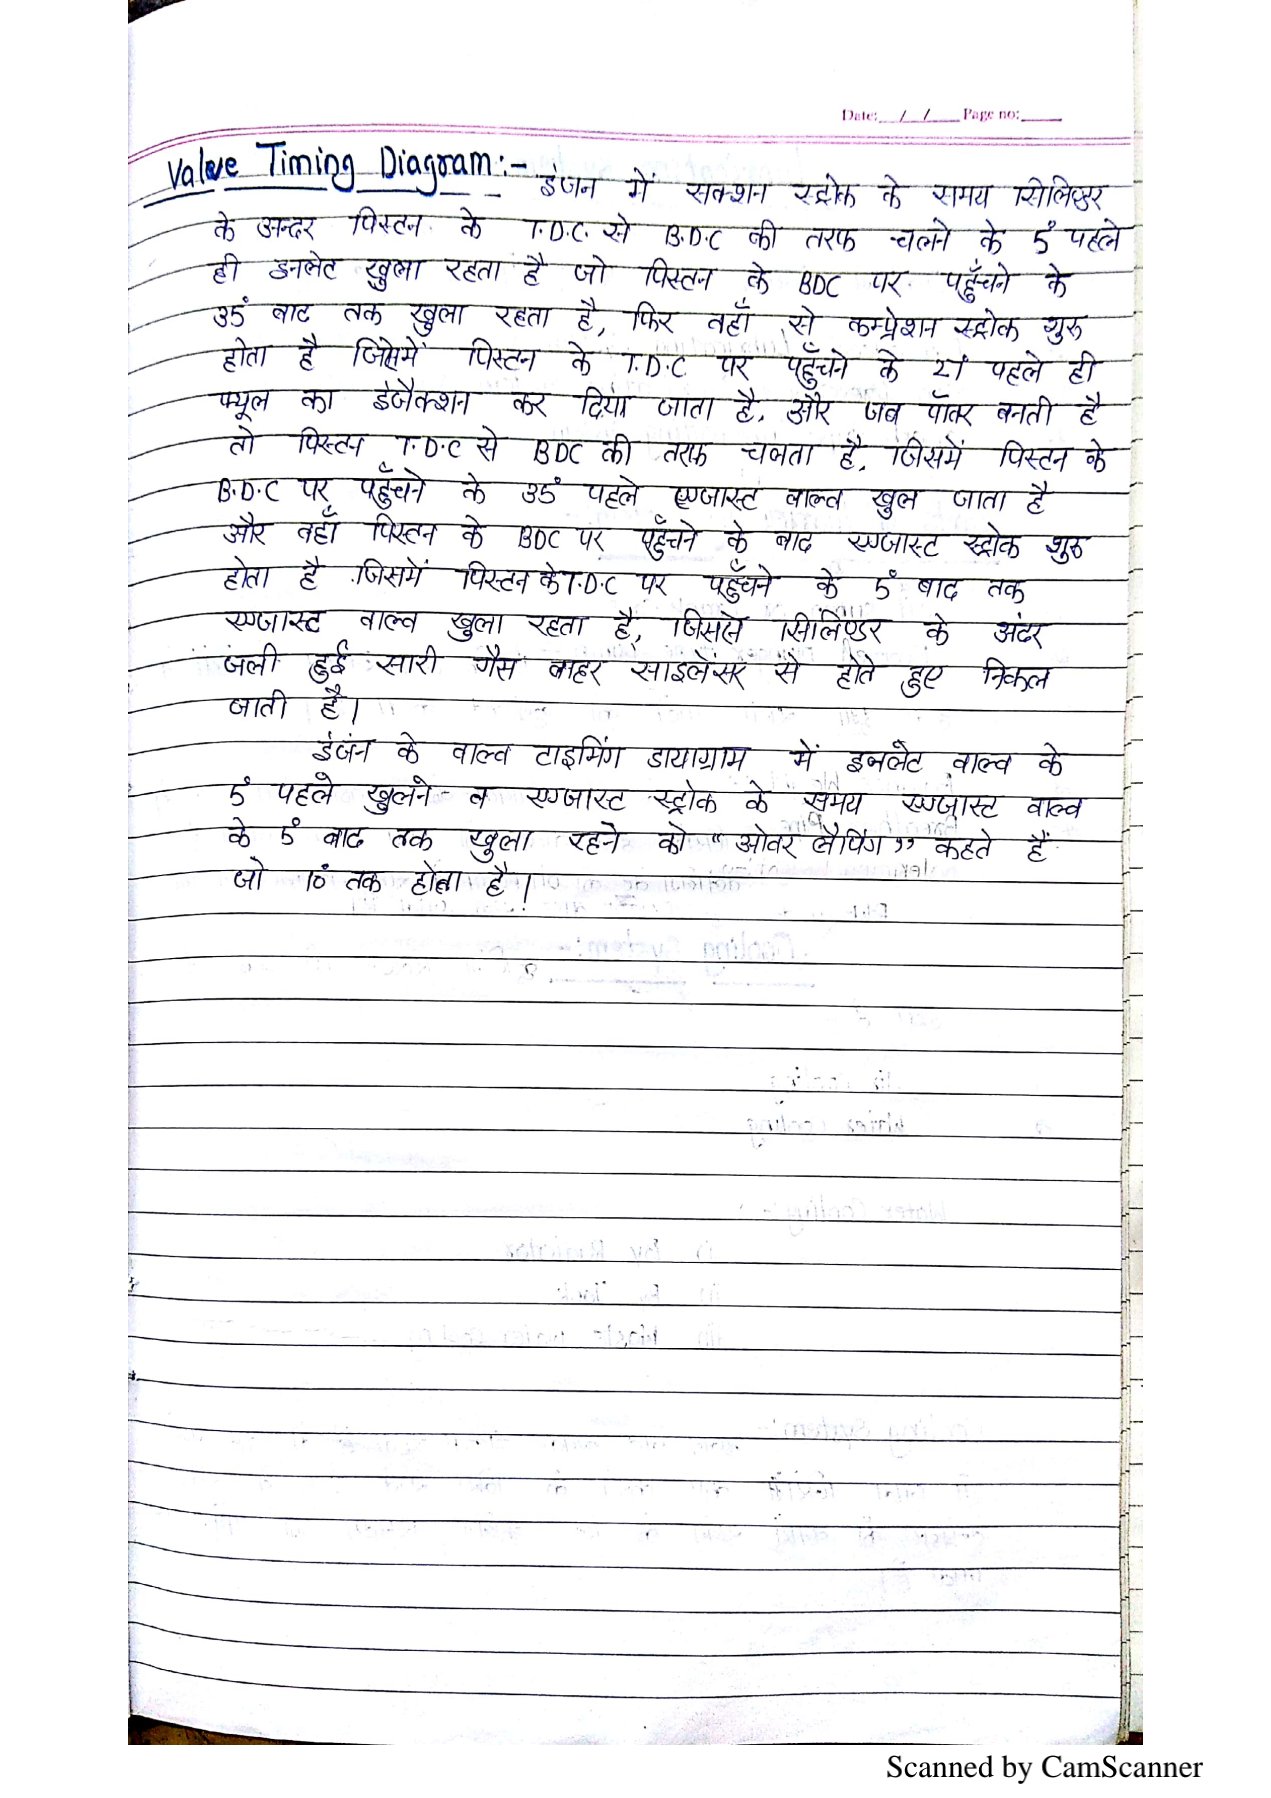 Date: __/__/____ Page no:____
Valve Timing Diagram:- इंजन में सक्शन स्ट्रोक के समय सिलिण्डर
के अन्दर पिस्टन के T.D.C. से B.D.C की तरफ चलने के 5° पहले
ही इनलेट खुला रहता है जो पिस्टन के BDC पर पहुँचने के
35° बाद तक खुला रहता है, फिर वहाँ से कम्प्रेशन स्ट्रोक शुरु
होता है जिसमें पिस्टन के T.D.C पर पहुँचने के 21° पहले ही
फ्यूल का इंजेक्शन कर दिया जाता है, और जब पॉवर बनती है
तो पिस्टन T.D.C से BDC की तरफ चलता है, जिसमें पिस्टन के
B.D.C पर पहुँचने के 35° पहले एग्जास्ट वाल्व खुल जाता है
और वहाँ पिस्टन के BDC पर पहुँचने के बाद एग्जास्ट स्ट्रोक शुरु
होता है जिसमें पिस्टन के T.D.C पर पहुँचने के 5° बाद तक
एग्जास्ट वाल्व खुला रहता है, जिससे सिलिण्डर के अंदर
जली हुई सारी गैस बाहर साइलेंसर से होते हुए निकल
जाती है।
इंजन के वाल्व टाइमिंग डायाग्राम में इनलेट वाल्व के
5° पहले खुलने व एग्जास्ट स्ट्रोक के समय एग्जास्ट वाल्व
के 5° बाद तक खुला रहने को "ओवर लैपिंग" कहते हैं
जो 10° तक होता है।
Scanned by CamScanner